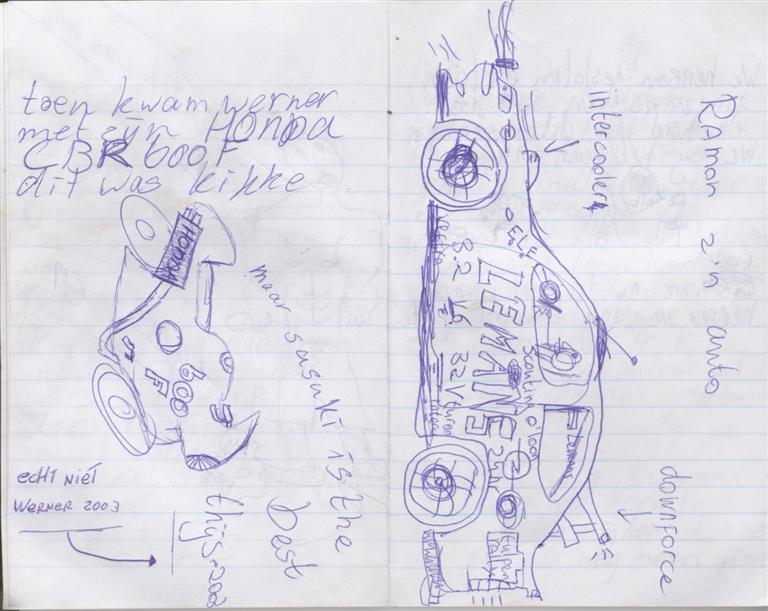 toen kwam werner
met zijn HONDA
CBR 600 F
dit was kikke
HONDA
600
F
maar susuki is the
best
thijs 2002
echt niet
WERNER 2003
Ramon z'n auto
intercooler
downforce
ELF
LEMANS
3.2 16 32V turbo
24
Lemans